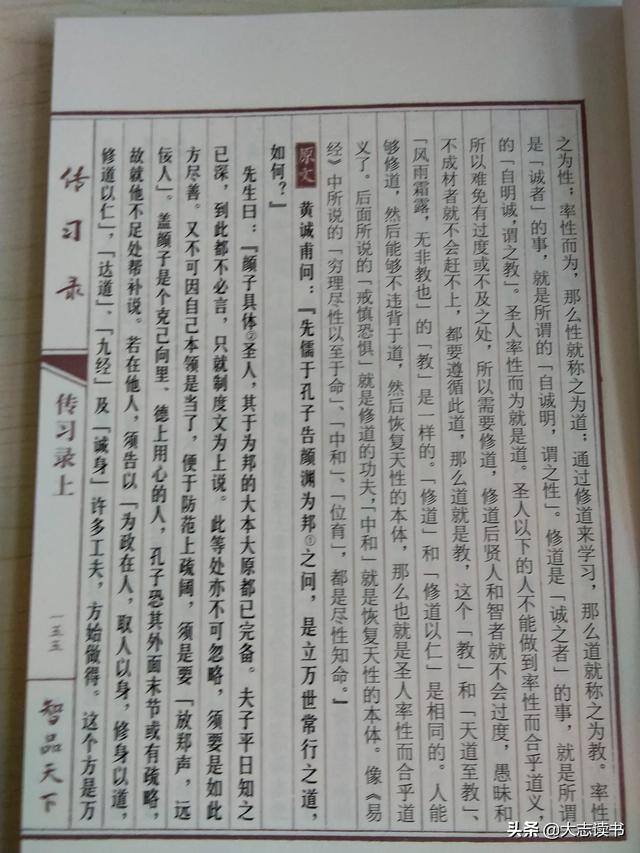 之为性；率性而为，那么性就称之为道；通过修道来学习，那么道就称之为教。率性
是「诚者」的事，就是所谓的「自诚明，谓之性」。修道是「诚之者」的事，就是所谓
的「自明诚，谓之教」。圣人率性而为就是道。圣人以下的人不能做到率性而合乎道义，
所以难免有过度或不及之处，所以需要修道，修道后贤人和智者就不会过度，愚昧和
不成材者就不会赶不上，都要遵循此道，那么道就是教，这个「教」和「天道至教」、
「风雨霜露，无非教也」的「教」是一样的。「修道」和「修道以仁」是相同的。人能
够修道，然后能够不违背于道，然后恢复天性的本体，那么也就是圣人率性而合乎道
义了。后面所说的「戒慎恐惧」就是修道的功夫，「中和」就是恢复天性的本体。像《易
经》中所说的「穷理尽性以至于命」、「中和」、「位育」，都是尽性知命。』
原文 黄诚甫问：『先儒于孔子告颜渊为邦①之问，是立万世常行之道，
如何？』
先生曰：『颜子具体②圣人，其于为邦的大本大原都已完备。夫子平日知之
已深，到此都不必言，只就制度文为上说。此等处亦不可忽略，须要是如此
方尽善。又不可因自己本领是当了，便于防范上疏阔，须是要「放郑声，远
佞人」。盖颜子是个克己向里、德上用心的人，孔子恐其外面末节或有疏略，
故就他不足处帮补说。若在他人，须告以「为政在人，取人以身，修身以道，
修道以仁」，「达道」、「九经」及「诚身」许多工夫，方始做得。这个方是万
传习录
传习录上
一五五
智品天下
头条 @大志读书